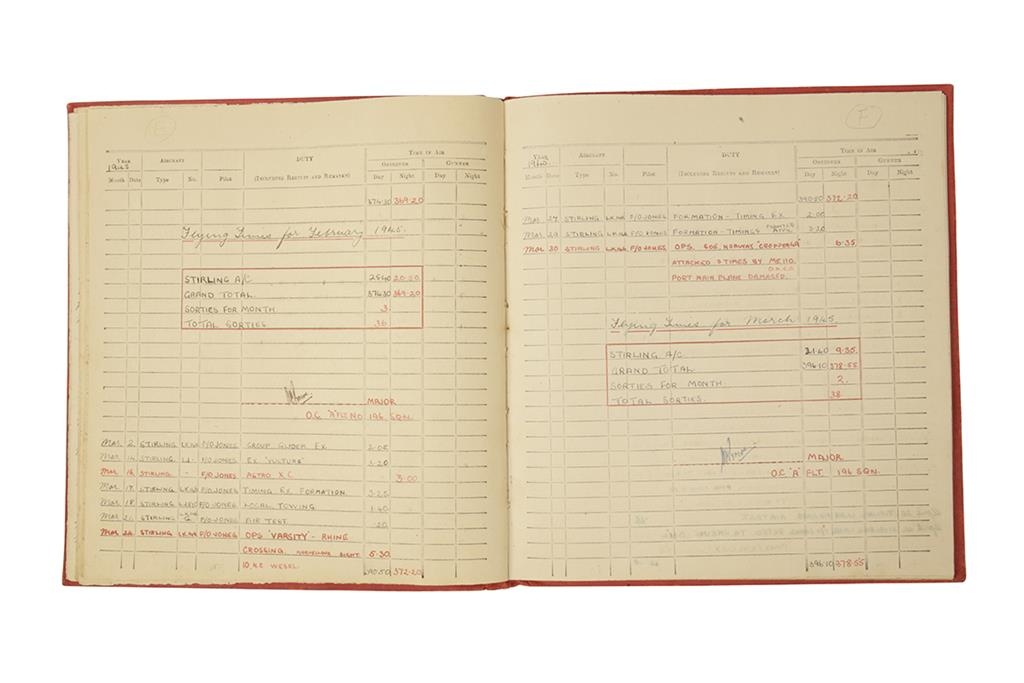 E
YEAR AIRCRAFT DUTY TIME IN AIR
1945 OBSERVER GUNNER
Month Date Type No. Pilot (INCLUDING RESULTS AND REMARKS) Day Night Day Night
374.30 369.20
Flying Times for February 1945.
STIRLING A/C 25.40 20.50
GRAND TOTAL. 374.30 369.20
SORTIES FOR MONTH. 3.
TOTAL SORTIES. 36
MAJOR
O.C. "A" FLT NO 196 SQN.
MAR 2. STIRLING F/O JONES GROUP GLIDER EX 2.05
MAR 14 STIRLING F/O JONES EX "VULTURE" 3.20
MAR STIRLING - F/O JONES ASTRO X.C. 3.00
MAR 17 STIRLING F/O JONES TIMING EX FORMATION. 3.25
MAR 18 STIRLING F/O JONES LOCAL TOWING 1.40
MAR STIRLING G F/O JONES AIR TEST .20
MAR 24 STIRLING F/O JONES OPS VARSITY - RHINE
CROSSING. 5.30
10 WESEL. 390.50 372.20
F
YEAR AIRCRAFT DUTY TIME IN AIR
OBSERVER GUNNER
Month Date Type No. Pilot (INCLUDING RESULTS AND REMARKS) Day Night Day Night
390.50 372.20
MAR 27 STIRLING F/O JONES FORMATION - TIMING EX 2.00
MAR 29 STIRLING F/O JONES FORMATION - TIMINGS 3.20
MAR 30 STIRLING F/O JONES OPS. SOE. NORWAY 6.35
ATTACKED TIMES BY ME 110.
PORT MAIN PLANE DAMAGED.
Flying Times for March 1945.
STIRLING A/C 21.40 9.35.
GRAND TOTAL 396.10 378.55
SORTIES FOR MONTH. 2.
TOTAL SORTIES. 38
MAJOR
O.C "A" FLT. 196 SQN.
396.10 378.55